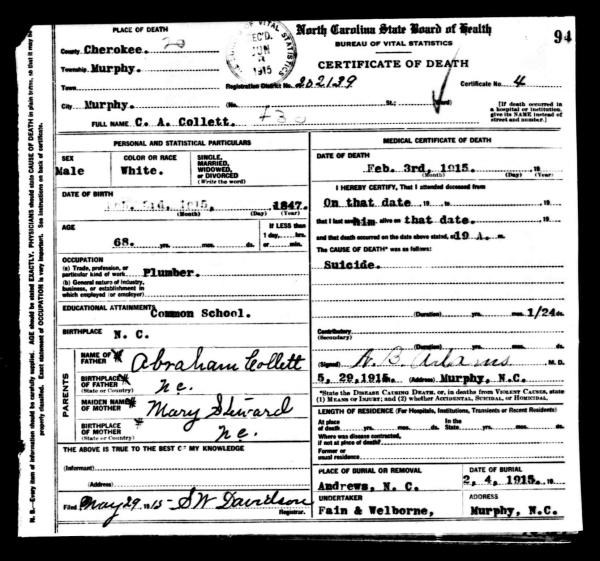 PLACE OF DEATH
County Cherokee. 20
Township Murphy.
Town
City Murphy.
VITAL STATISTICS
REC'D.
JUN
1915
North Carolina State Board of Health
BUREAU OF VITAL STATISTICS
CERTIFICATE OF DEATH
94
Registration District No. 202139
Certificate No. 4
(No. St.; Ward)
[If death occurred in a hospital or institution, give its NAME instead of street and number.]
FULL NAME C. A. Collett.
PERSONAL AND STATISTICAL PARTICULARS
SEX
Male
COLOR OR RACE
White.
SINGLE, MARRIED, WIDOWED, or DIVORCED
(Write the word)
DATE OF BIRTH
1847.
(Month) (Day) (Year)
AGE
68. yrs. mos. ds.
If LESS than
1 day, hrs.
or min.
OCCUPATION
(a) Trade, profession, or particular kind of work Plumber.
(b) General nature of industry, business, or establishment in which employed (or employer)
EDUCATIONAL ATTAINMENTS Common School.
BIRTHPLACE
N. C.
PARENTS
NAME OF FATHER Abraham Collett
BIRTHPLACE OF FATHER
(State or Country) nc.
MAIDEN NAME OF MOTHER Mary Steward
BIRTHPLACE OF MOTHER
(State or Country) nc.
THE ABOVE IS TRUE TO THE BEST OF MY KNOWLEDGE
(Informant)
(Address)
Filed May 29 1915 - S W Davidson
Registrar.
MEDICAL CERTIFICATE OF DEATH
DATE OF DEATH
Feb. 3rd, 1915. 19
(Month) (Day) (Year)
I HEREBY CERTIFY, That I attended deceased from
On that date, 19
that I last saw him alive on that date. 19
and that death occurred on the date above stated, at 10 A. m.
The CAUSE OF DEATH* was as follows:
Suicide.
(Duration) yrs. mos. 1/24 ds.
Contributory
(Secondary)
(Duration) yrs. mos. ds.
(Signed) M. D.
5, 29, 1915. (Address) Murphy, N.C.
*State the DISEASE CAUSING DEATH, or, in deaths from VIOLENT CAUSES, state (1) MEANS OF INJURY; and (2) whether ACCIDENTAL, SUICIDAL, OR HOMICIDAL.
LENGTH OF RESIDENCE (For Hospitals, Institutions, Transients or Recent Residents)
At place of death yrs. mos. ds.
In the State yrs. mos. ds.
Where was disease contracted, if not at place of death?
Former or usual residence
PLACE OF BURIAL OR REMOVAL
Andrews, N. C.
DATE OF BURIAL
2, 4, 1915. 19
UNDERTAKER
Fain & Welborne,
ADDRESS
Murphy, N.C.
N. B.—Every item of information should be carefully supplied. AGE should be stated EXACTLY. PHYSICIANS should state CAUSE OF DEATH in plain terms, so that it may be
properly classified. Exact statement of OCCUPATION is very important. See instructions on back of certificate.